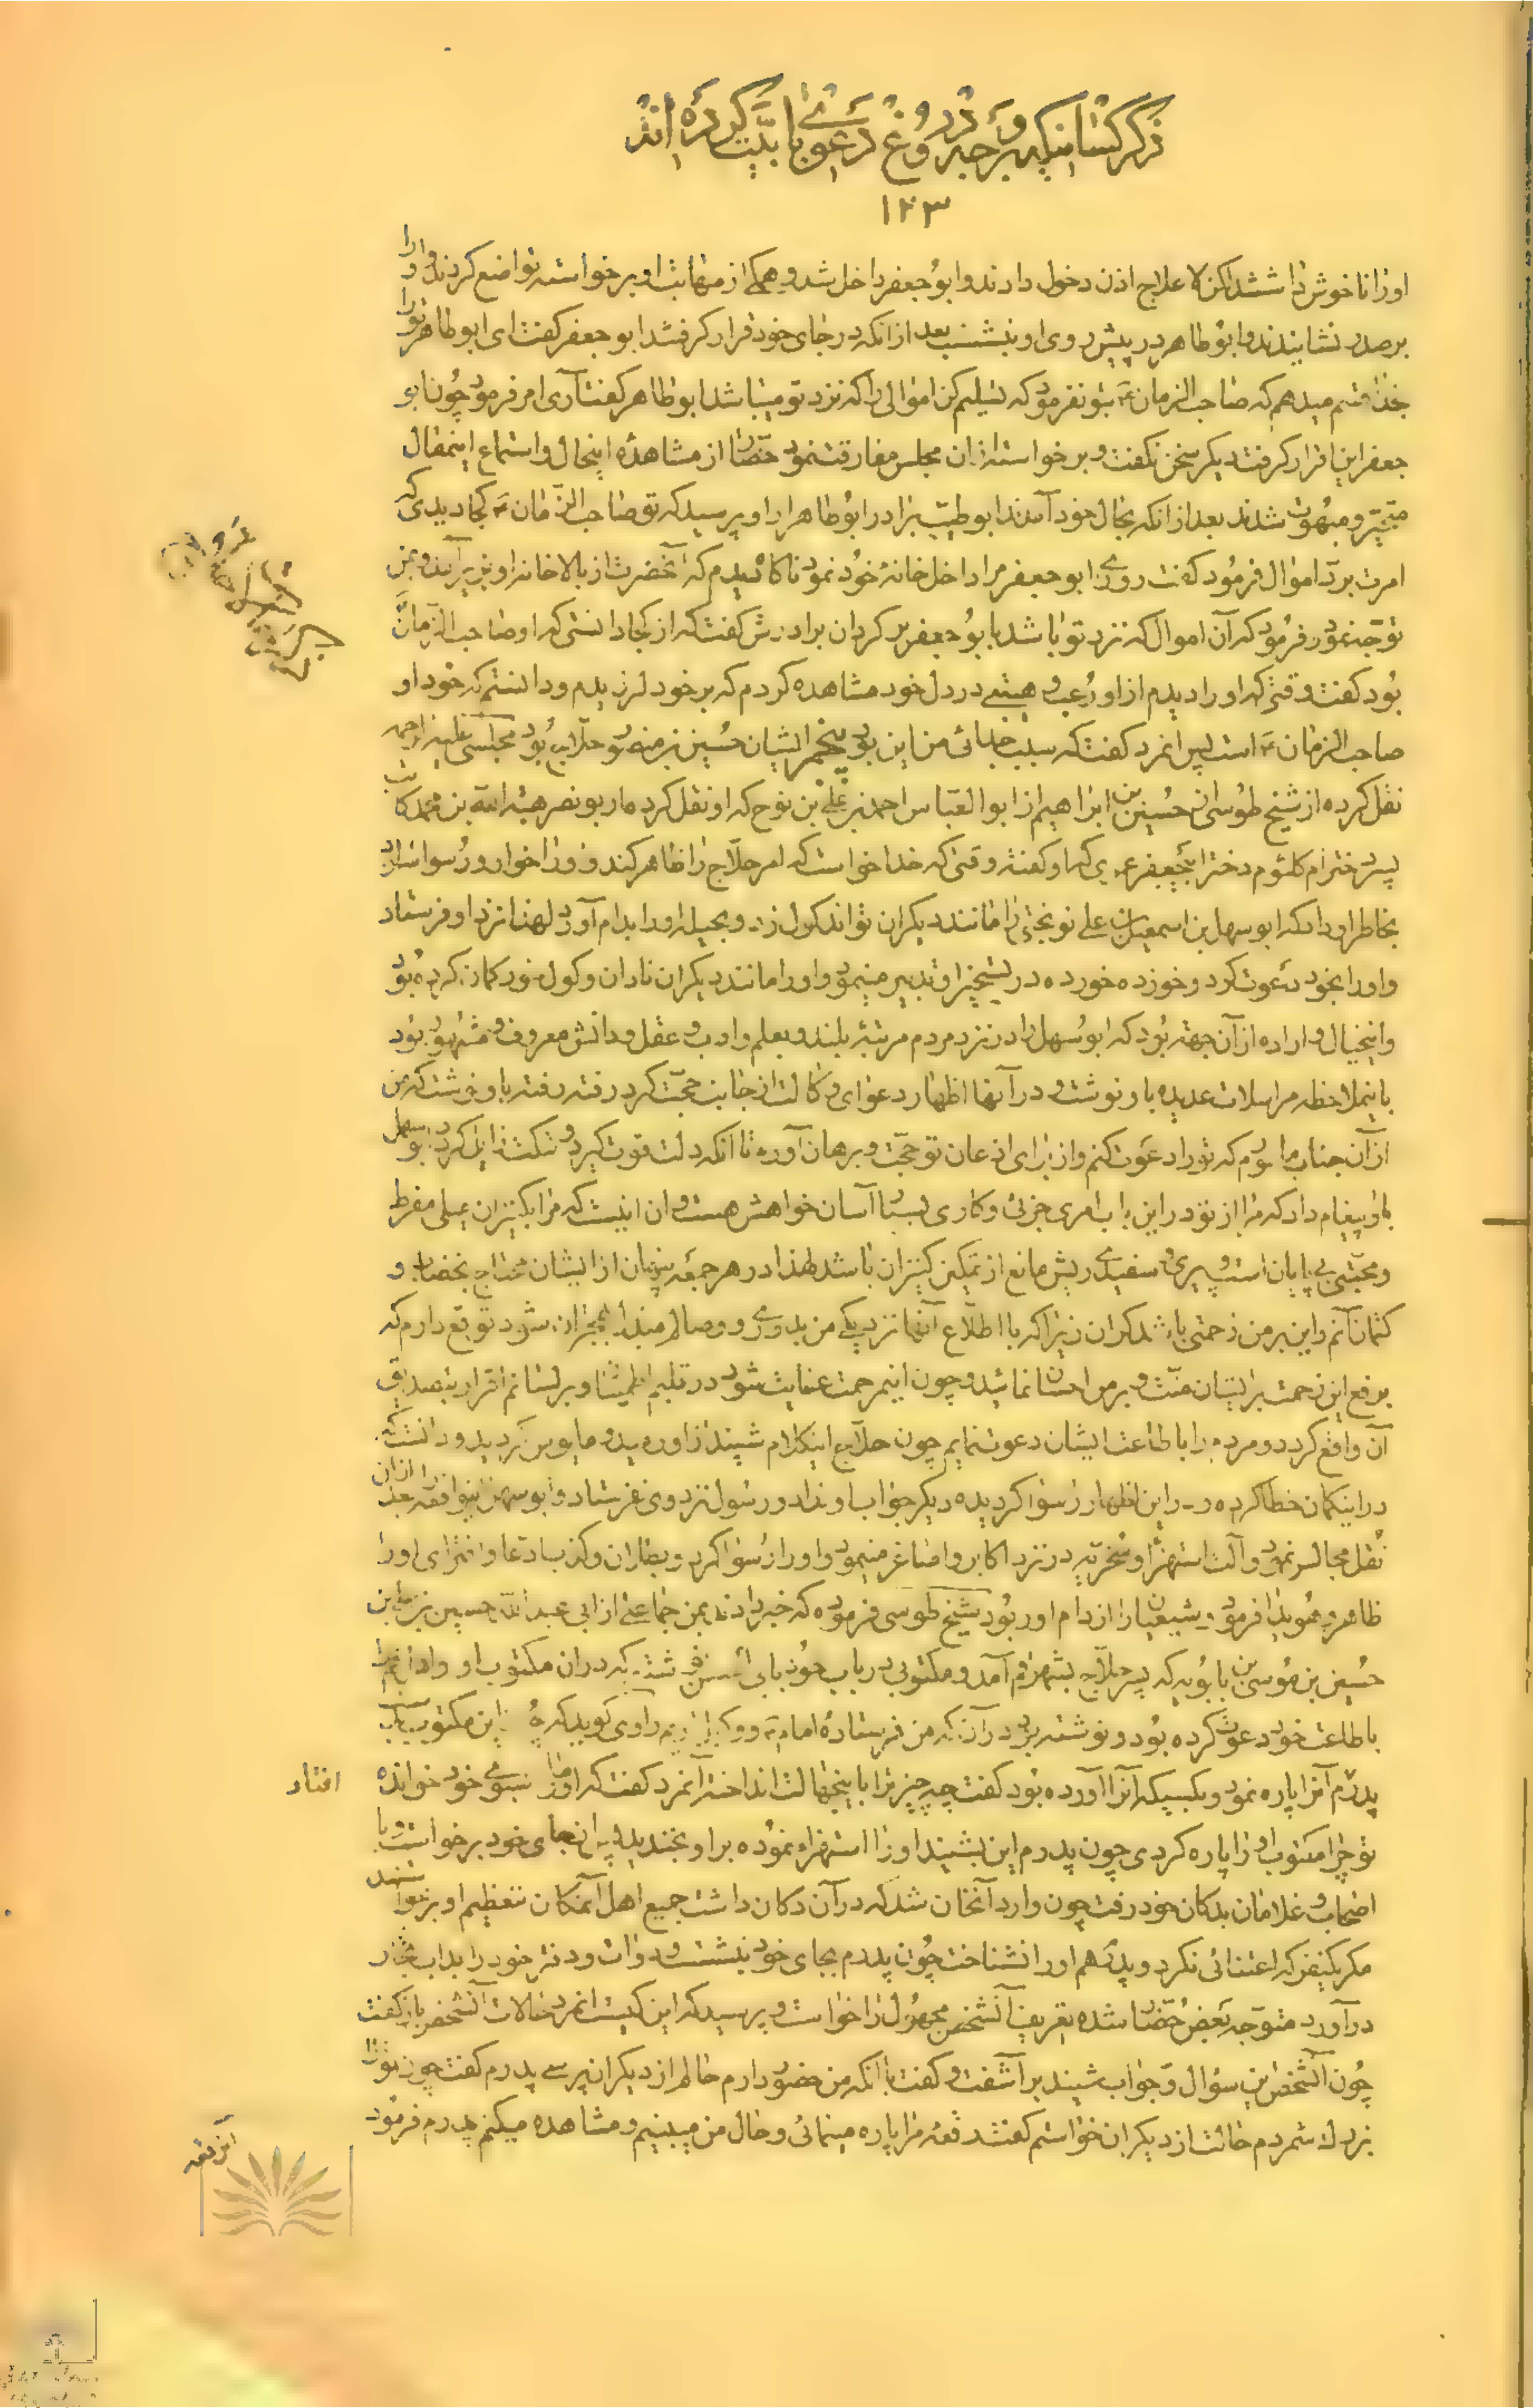 ذکر کسانیکه بر وجه دروغ دعوی بابیّت کرده اند
۱۲۳
او را ناخوش داشتند لکن لاعلاج اذن دخول دادند و ابو جعفر داخل شد و همکی از مهابت او برخواسته تواضع کردند و او را
بر صدر نشانیدند و ابو طاهر در پیش روی او بنشست بعد از انکه در جای خود قرار کرفتند ابو جعفر کفت ای ابو طاهر ترا
بخدا قسم میدهم که صاحب الزمان بتو نفرمود که تسلیم کن اموالی را که نزد تو میباشد ابو طاهر کفت آری امر فرمود چون ابو
جعفر این اقرار کرفت دیکر سخن نکفت و برخواسته از ان مجلس مفارقت نمود حضّار از مشاهدۀ اینحال و استماع اینمقال
متحیّر و مبهوت شدند بعد از انکه بحال خود آمدند ابو طیّب برادر ابو طاهر از او پرسید که تو صاحب الزّمان کجا دیدی که
امرت بردّ اموال فرمود کفت روزی ابو جعفر مرا داخل خانۀ خود نمود ناکاه دیدم که آنحضرت از بالاخانه او بزیر آمد و بمن
توجّه نمود و فرمود که آن اموال که نزد تو باشد بابو جعفر برکردان برادرش کفت که از کجا دانستی که او صاحب الزّمان
بود کفت وقتی که او را دیدم از او رعب و هیبتی در دل خود مشاهده کردم که بر خود لرزیدم و دانستم که خود او
صاحب الزمان است پس انمرد کفت که سبب جدائی من این بود پنجم ایشان حسین بن منصور حلّاج بود مجلسی علیه الرحمه
نقل کرده از شیخ طوسی از حسین بن ابراهیم از ابو العبّاس احمد بن علی بن نوح که او نقل کرده از ابو نصر هبة الله بن محمد کاتب
پسر دختر ام کلثوم دختر ابیجعفر عمری که او کفته وقتی که خدا خواست که امر حلّاج را ظاهر کند و او را خوار و رسوا سازد
بخاطر او داد که ابو سهل بن اسمعیل بن علی نوبختی را مانند دیکران تواند کول زد و بحیله او را بدام آورد لهذا نزد او فرستاد
و او را بخود دعوت کرد و خورده خورده در تسخیر او تدبیر مینمود و او را مانند دیکران نادان و کول خور کمان کرده بود
و اینخیال و اراده از آن جهت بود که ابو سهل را در نزد مردم مرتبۀ بلند و بعلم و ادب و عقل و دانش معروف و مشهور بود
باینملاحظه مراسلات عدیده باو نوشت و در آنها اظهار دعوای وکالت از جانب حجّت کرد رفته رفته باو نوشت که من
از آن جناب مامورم که تو را دعوت کنم و از برای اذعان تو حجّت و برهان آورم تا آنکه دلت قوت کیرد و شکت زایل کردد ابو سهل
باو پیغام داد که مرا از تو در این باب امری جزئی و کاری بسیار آسان خواهش هست و ان اینست که مرا بکنیزان میلی مفرط
و محبّتی بی پایان است و پیری و سفیدی ریش مانع از تمکین کنیزان باشد لهذا در هر جمعه پنهان از ایشان محتاج بخضاب و
کتمان آنم و این بر من زحمتی باشد کران زیرا که با اطّلاع آنها نزدیکی من بدوری و وصالم مبدّل بهجران شود توقع دارم که
برفع این زحمت بر ایشان منّت و بر من احسان نمائید و چون اینمرحمت عنایت شود در قلبم اطمینان و بر لسانم اقرار بتصدیق
آن واقع کردد و مردم را باطاعت ایشان دعوت نمایم چون حلّاج اینکلام شنید از او رمید و مایوس کردید و دانست که
در اینکمان خطا کرده و در این اظهار رسوا کردیده دیکر جواب او نداد و رسول نزد وی نفرستاد و ابو سهل اینواقعه را بعد از ان
نقل مجالس نمود و آلت استهزاء و سخریّه در نزد اکابر و اصاغر مینمود و او را رسوا کرد و بطلان و کذب ادعا و افترای او را
ظاهر و هویدا فرمود و شیعیان را از دام او ربود شیخ طوسی فرموده که خبر دادند بمن جماعتی از ابی عبد الله حسین بن علی بن
حسین بن موسی بن بابویه که پسر حلّاج بشهر قم آمد و مکتوبی در باب خود بابی الحسن نوشت که در ان مکتوب او و ادانم را
باطاعت خود دعوت کرده بود و نوشته بود در آن که من فرستادۀ امام و وکیل اویم راوی کوید که چون این مکتوب بدست
پدرم آنرا پاره نمود و بکسیکه آنرا آورده بود کفت چه چیز ترا باینجهالت انداخته آنمرد کفت که او ما را بسوی خود خوانده افتاد
تو چرا مکتوب او را پاره کردی چون پدرم این بشنید او را استهزاء نموده بر او بخندید پس از جای خود برخواست و با
اصحاب و غلامان بدکان خود رفت چون وارد آنخان شد که در آن دکان داشت جمیع اهل آنمکان بتعظیم او برخواستند
مکر یکنفر که اعتنائی نکرد و پدرم هم او را نشناخت چون پدرم بجای خود بنشست و دوات و دفتر خود را بداب تجّار
درآورد متوجّه بعض حضّار شده تعریف آنشخص مجهول را خواست و پرسید که این کیست انمرد حالات آنشخص باز کفت
چون آنشخص این سؤال و جواب شنید برآشفت و کفت با انکه من حضور دارم حالم از دیکران پرسی پدرم کفت چون ترا
بزرک شمردم حالت از دیکران خواستم کفت رقعۀ مرا پاره مینمائی و حال من میبینم و مشاهده میکنم پدرم فرمود
این رقعه